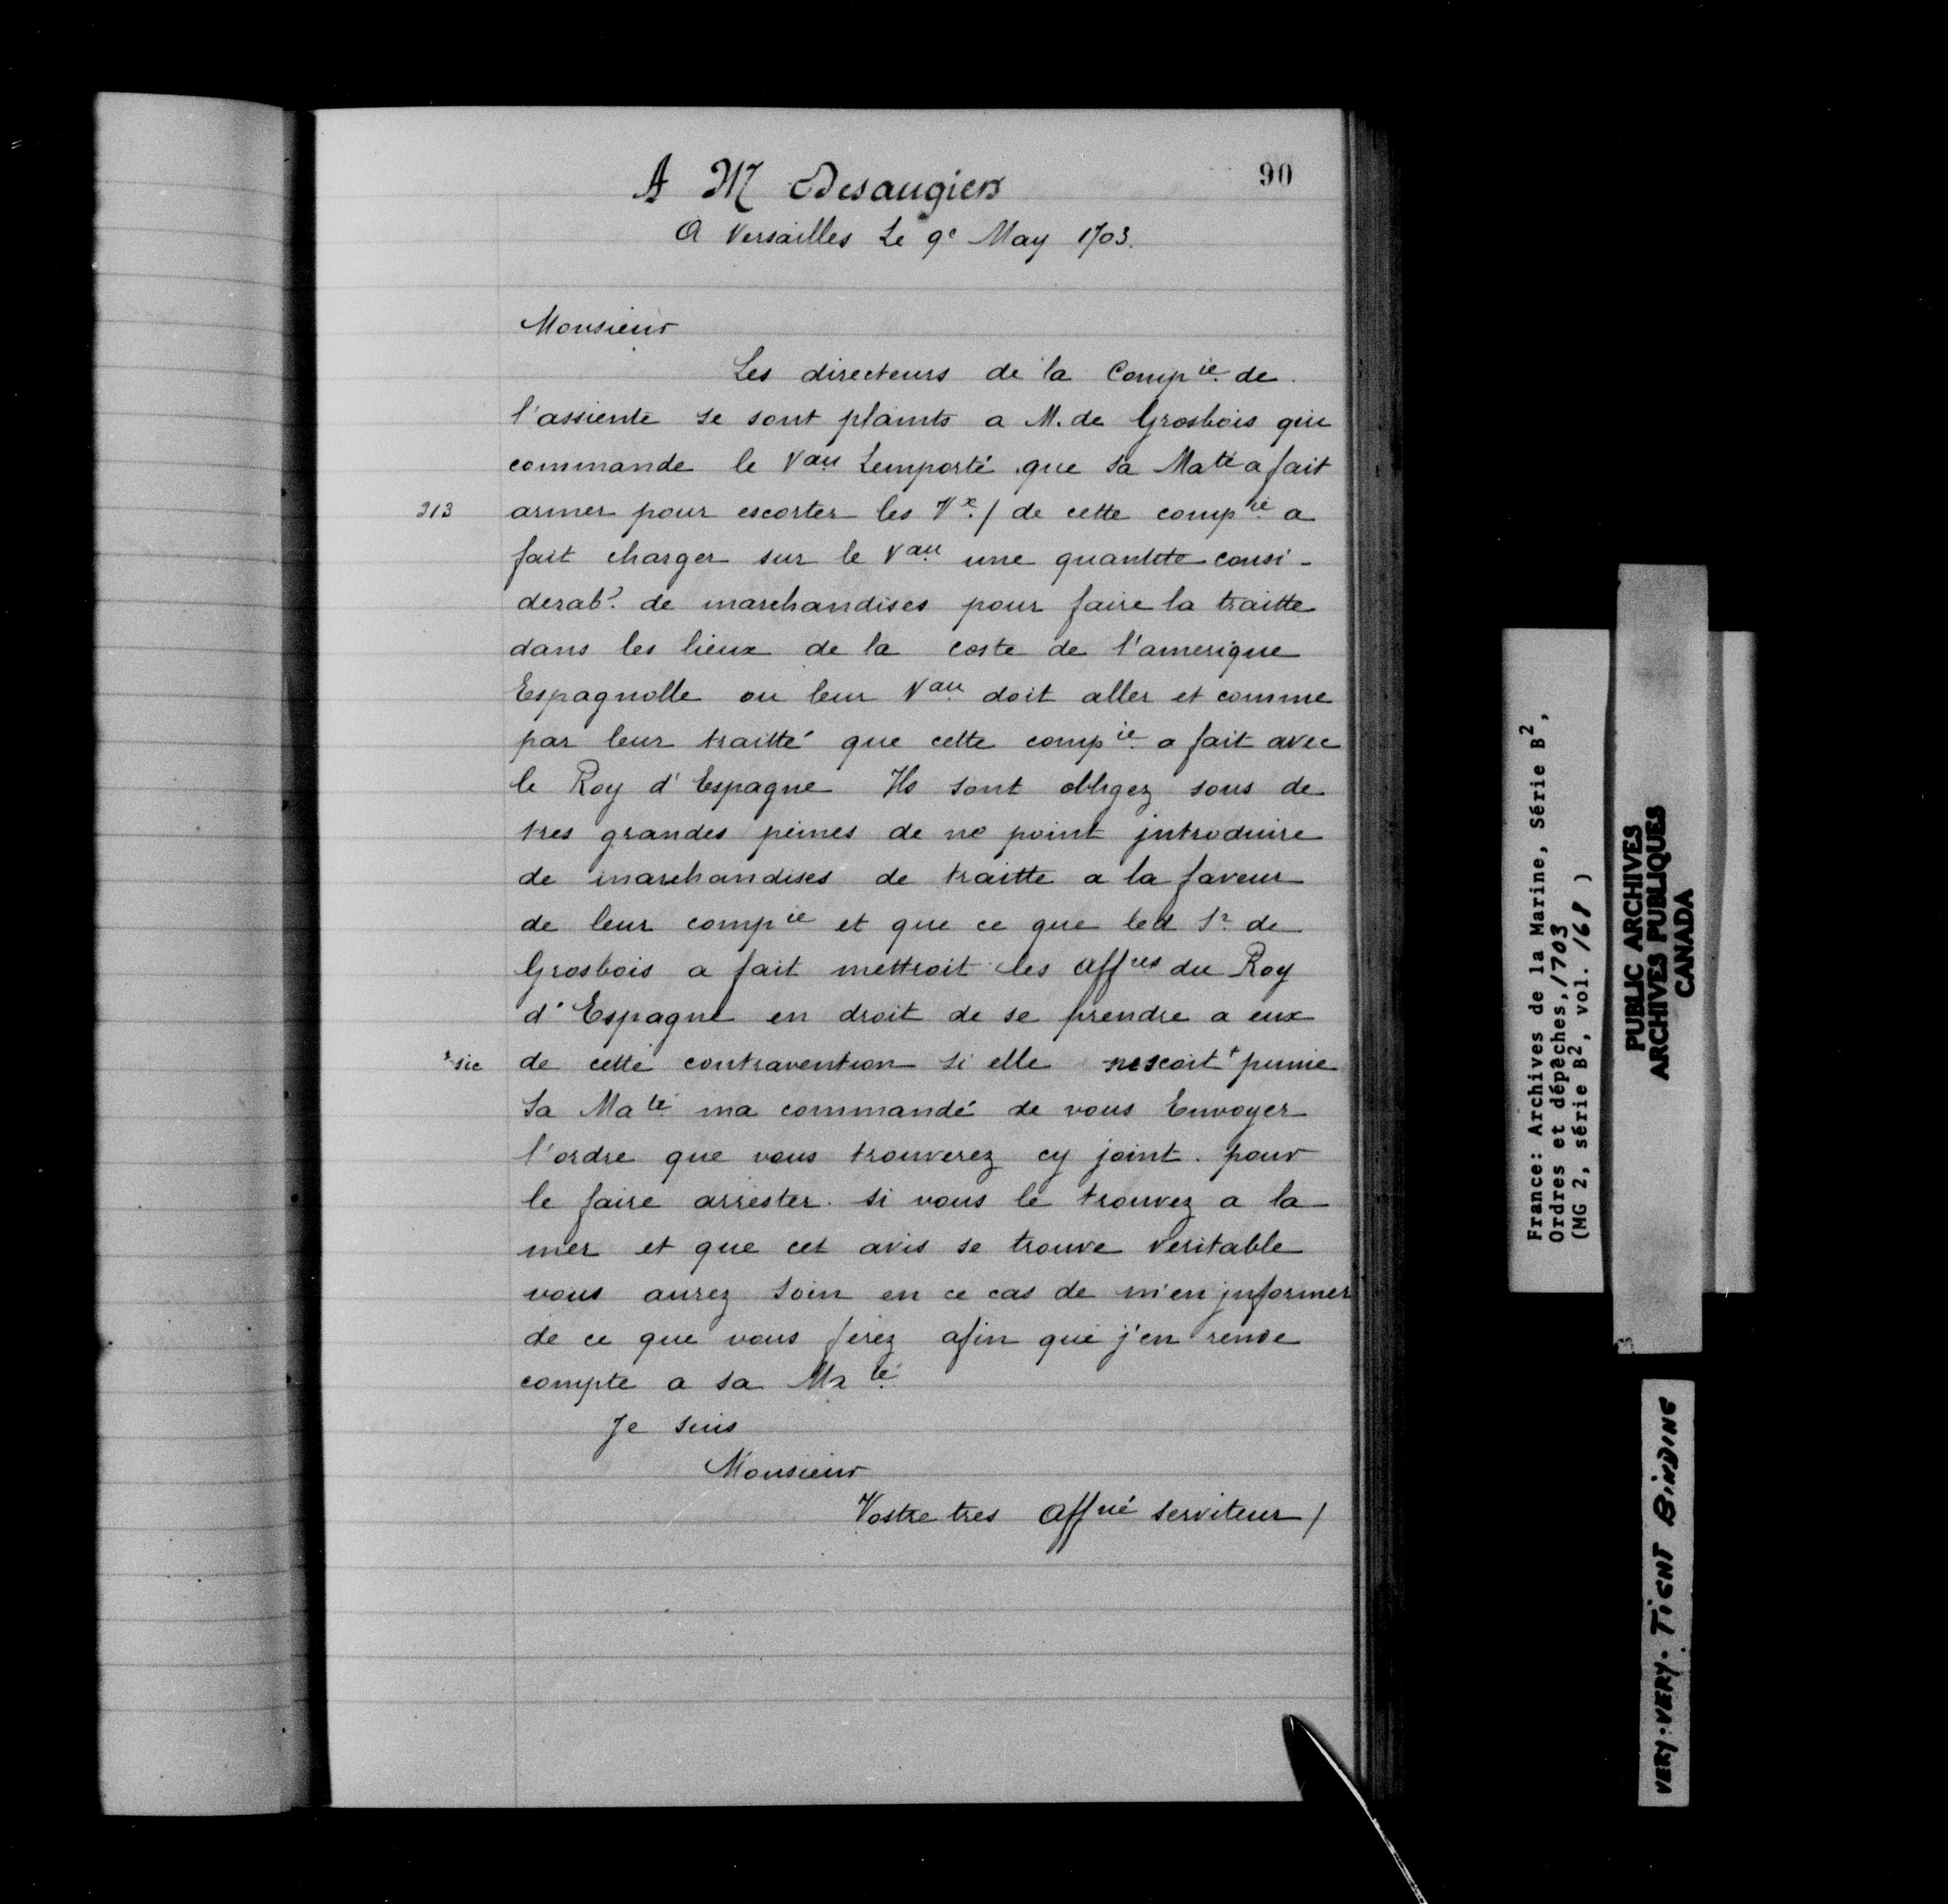 90
A Mr Desaugiers
A Versailles Le 9e May 1703.
Monsieur
Les directeurs de la Compie de
l'assiente se sont plaints a M. de Grosbois qui
commande le Vau Lemporté que sa Maté a fait
313 armer pour escorter les Vx / de cette compie a
fait charger sur le Vau une quantite consi-
derabe de marchandises pour faire la traitte
dans les lieux de la coste de l'amerique
Espagnolle ou leur Vau doit aller et comme
par leur traitté que cette compie a fait avec
le Roy d'Espagne Ils sont obligez sous de
tres grandes peines de ne point introduire
de marchandises de traitte a la faveur
de leur compie et que ce que led Sr de
Grosbois a fait mettroit les affres du Roy
d'Espagne en droit de se prendre a eux
+ sic de cette contravention si elle nescoit + punie
Sa Maté ma commandé de vous Envoyer
l'ordre que vous trouverez cy joint. pour
le faire arrester. si vous le trouvez a la
mer et que cet avis se trouve veritable
vous aurez soin en ce cas de m'en informer
de ce que vous ferez afin que j'en rende
compte a sa Maté
Je suis
Monsieur
Vostre tres affné serviteur /
France: Archives de la Marine, Série B2,
Ordres et dépêches, 1703
(MG 2, série B2, vol. 168 )
PUBLIC ARCHIVES
ARCHIVES PUBLIQUES
CANADA
VERY-VERY-TIGHT BINDING